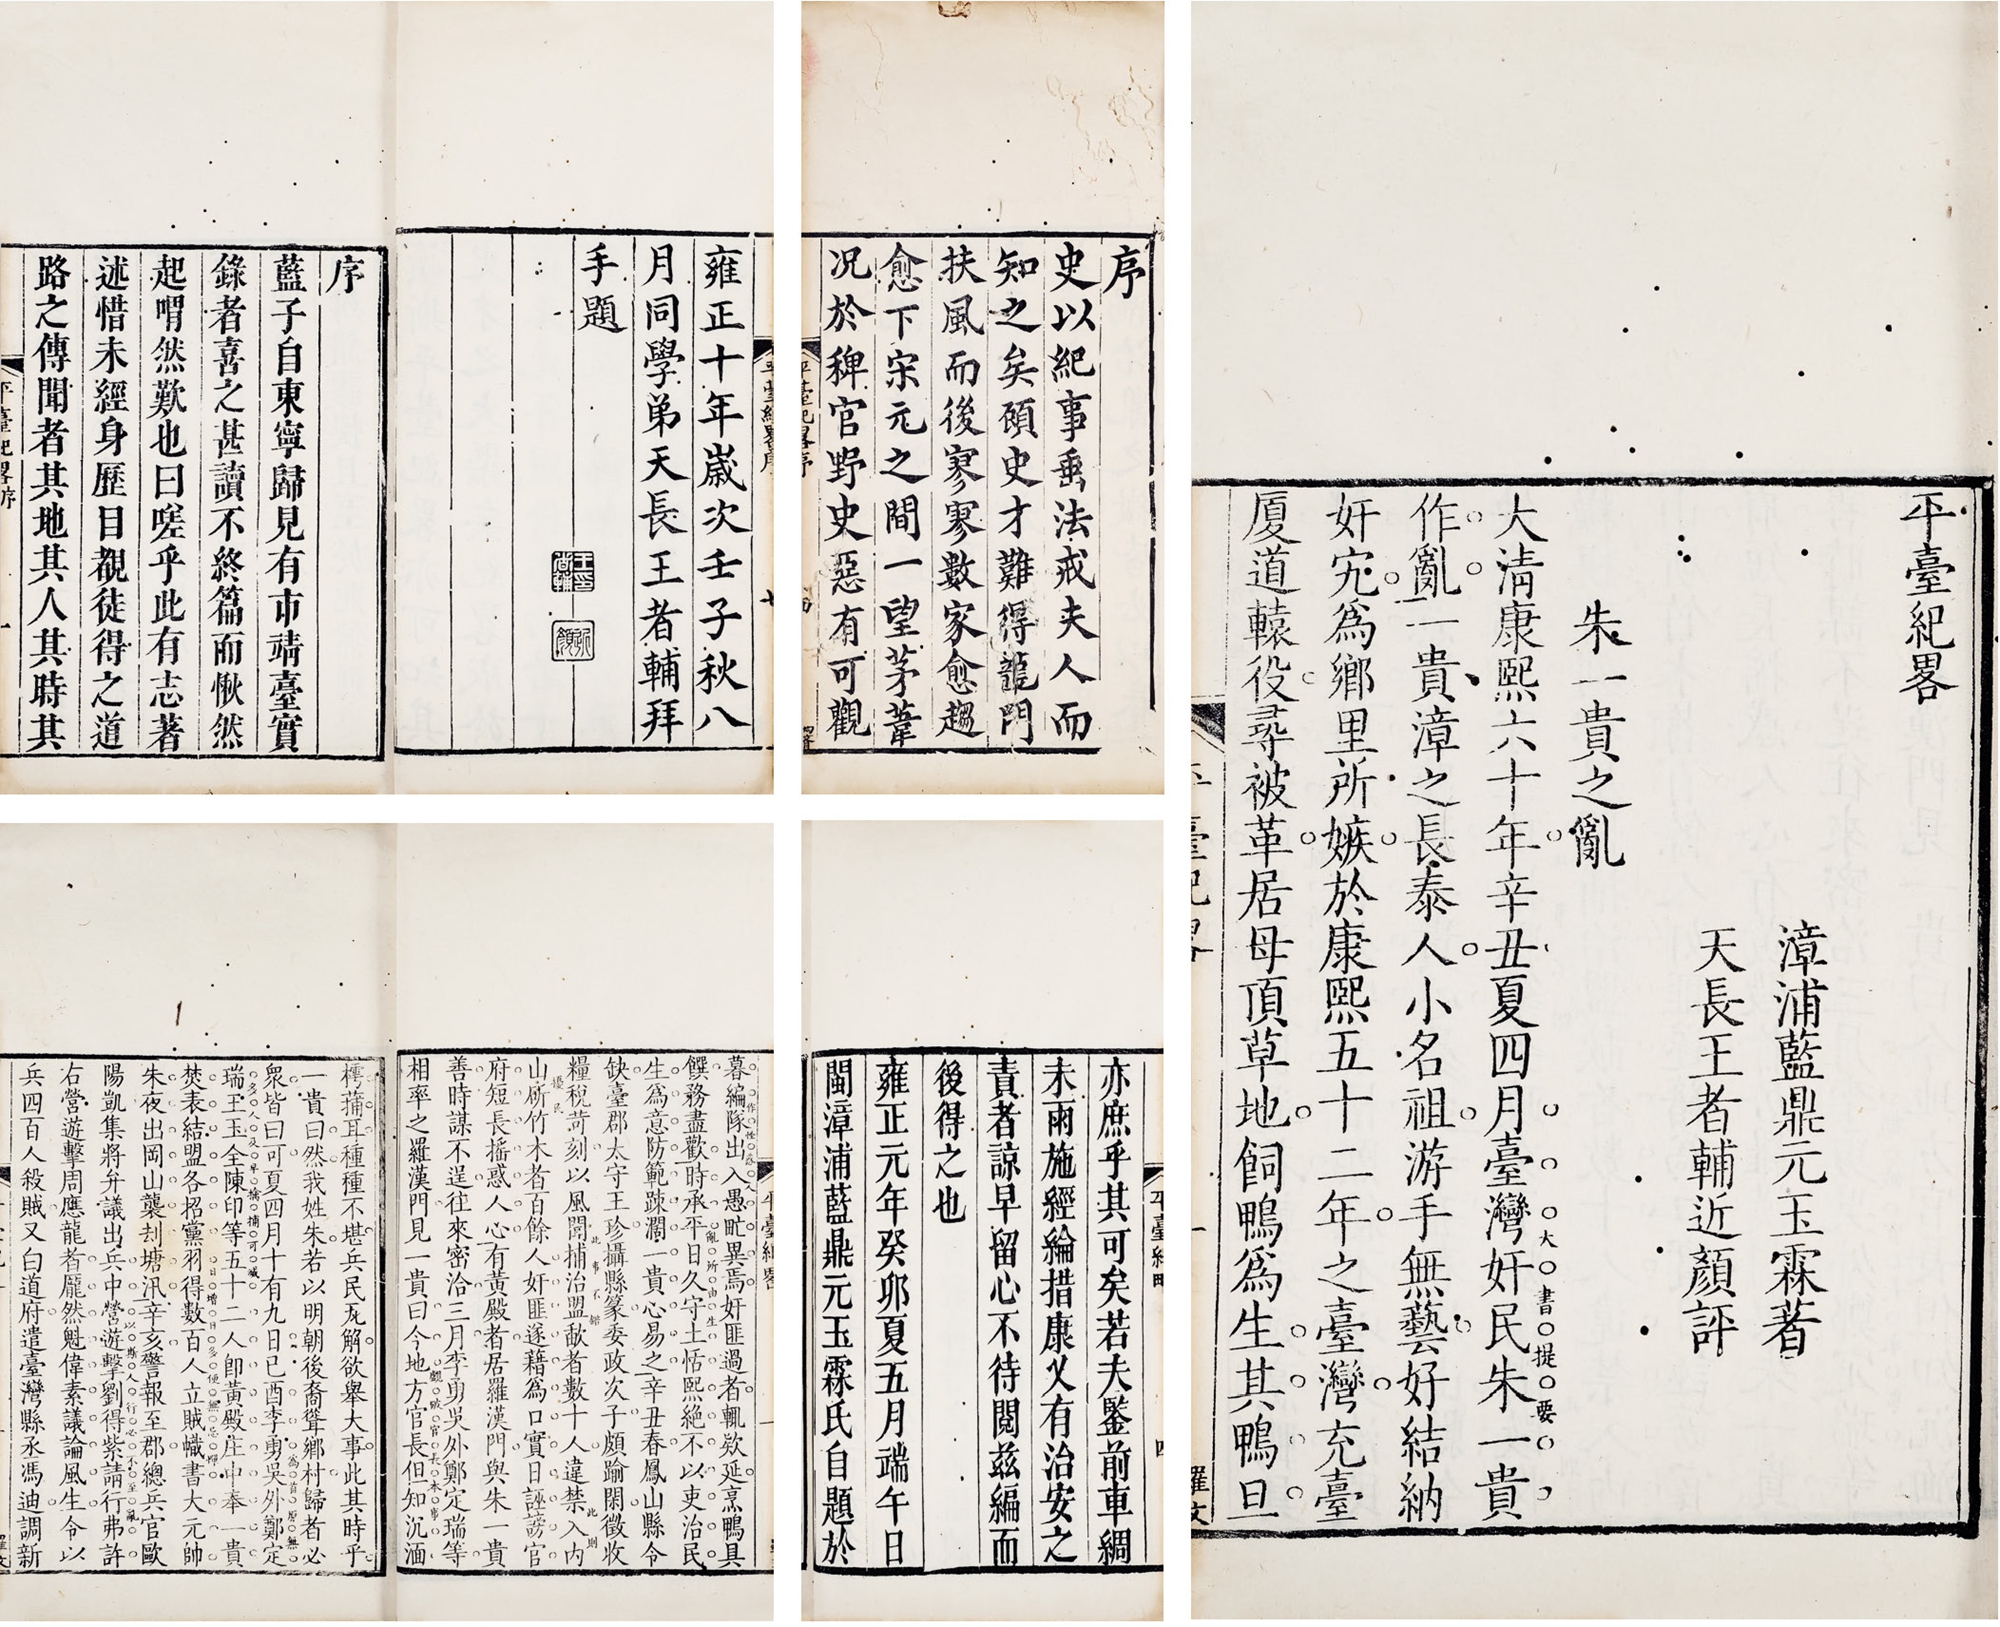 平臺紀畧
漳浦藍鼎元玉霖著
天長王者輔近顏評
朱一貴之亂
大清康熙六十年辛丑夏四月臺灣奸民朱一貴
大書提要
作亂一貴漳之長泰人小名祖游手無藝好結納
奸宄為鄉里所嫉於康熙五十二年之臺灣充臺
厦道轅役尋被革居母頂草地飼鴨為生其鴨旦
平臺紀畧
一
羅文
序
史以紀事垂法戒夫人而
知之矣碩史才難得龍門
扶風而後寥寥數家愈趨
愈下宋元之間一望茅葦
况於稗官野史惡有可觀
平臺紀畧序
亦庶乎其可矣若夫鑒前車綢
未雨施經綸措康乂有治安之
責者諒早留心不待閱茲編而
後得之也
雍正元年癸卯夏五月端午日
閩漳浦藍鼎元玉霖氏自題於
平臺紀略
四
平臺紀畧序
七
雍正十年歲次壬子秋八
月同學弟天長王者輔拜
手題
序
藍子自東寧歸見有市靖臺實
錄者喜之甚讀不終篇而愀然
起喟然歎也曰嗟乎此有志著
述惜未經身歷目覩徒得之道
路之傳聞者其地其人其時其
平臺紀畧序
一
平臺紀畧
一
暮編隊出入愚甿異焉奸匪過者輒欵延烹鴨具
饌務盡歡時承平日久守土恬熙絶不以吏治民
亂所由生
生為意防範踈濶一貴心易之辛丑春鳳山縣令
缺臺郡太守王珍攝縣篆委政次子頗踰閑徵收
糧稅苛刻以風聞捕治盟歃者數十人違禁入內
山斫竹木者百餘人奸匪遂藉為口實日誣謗官
府短長搖惑人心有黃殿者居羅漢門與朱一貴
善時謀不逞往來密洽三月李勇吳外鄭定瑞等
相率之羅漢門見一貴曰今地方官長但知沉湎
樗蒱耳種種不堪兵民瓦解欲舉大事此其時乎
一貴曰然我姓朱若以明朝後裔聳鄉村歸者必
衆皆曰可夏四月十有九日己酉李勇吳外鄭定
瑞王玉全陳印等五十二人卽黃殿庄中奉一貴
焚表結盟各招黨羽得數百人立賊幟書大元帥
朱夜出岡山襲刦塘汛辛亥警報至郡總兵官歐
陽凱集將弁議出兵中營遊擊劉得紫請行弗許
右營遊擊周應龍者龐然魁偉素議論風生令以
兵四百人殺賊又白道府遣臺灣縣丞馮迪調新
羅文